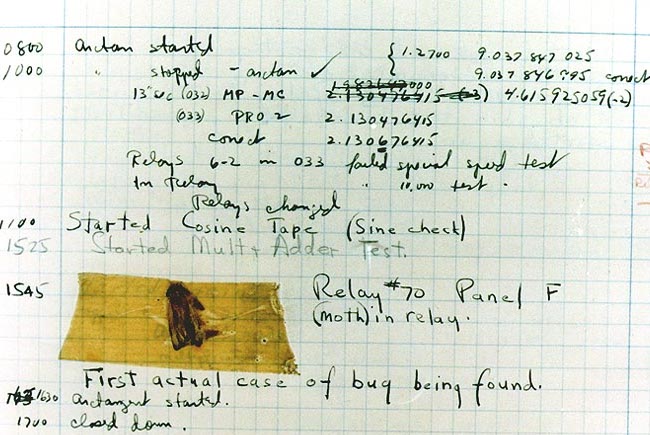 0800 arctan started { 1.2700 9.037 847 025
1000 " stopped - arctan ✓ 9.037 846 995 correct
13"sec (032) MP - MC 2.130476415 4.615925059(-2)
(033) PRO 2 2.130476415
correct 2.130676415
Relays 6-2 in 033 failed special speed test
In Relay " 10.000 test.
Relays changed
1100 Started Cosine Tape (Sine check)
1525 Started Mult + Adder Test.
1545 Relay #70 Panel F
(moth) in relay.
First actual case of bug being found.
1630 arctangent started.
1700 closed down.